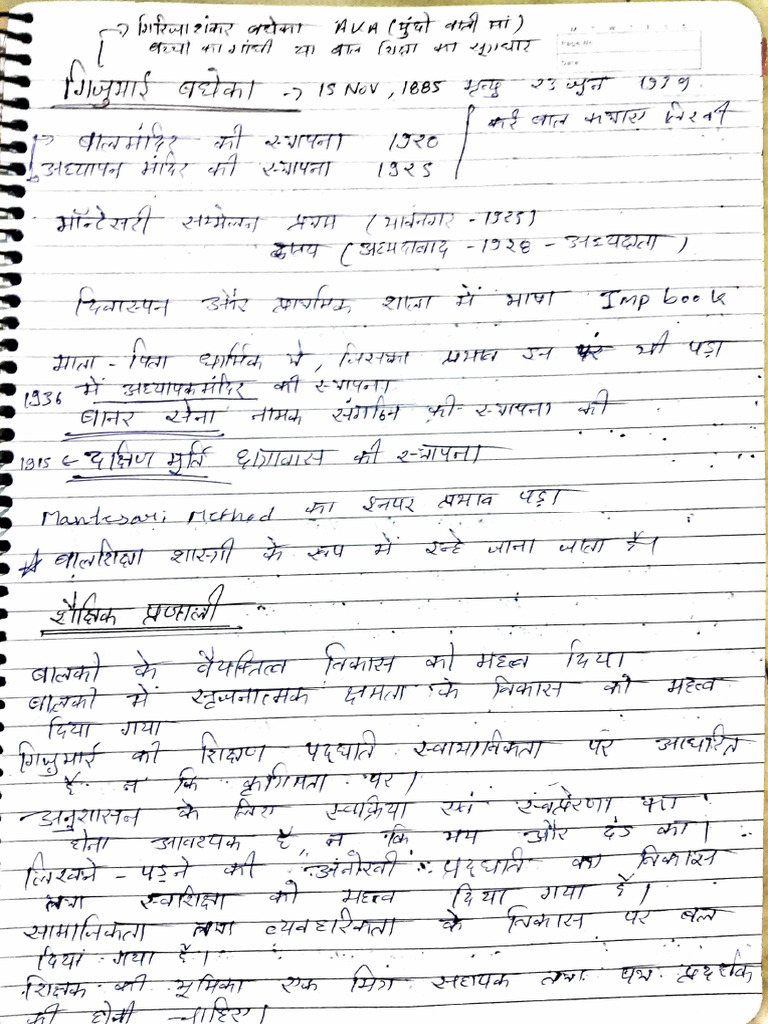 → गिरिजाशंकर बधेका AKA (मुंछो वाली मां)
बच्चो का गांधी या बाल शिक्षा का सूत्रधार
गिजुभाई बधेका → 15 Nov, 1885 मृत्यु 23 जून 1939
→ बालमंदिर की स्थापना 1920
कई बाल कथाए लिखी
→ अध्यापन मंदिर की स्थापना 1925
मॉन्टेसरी सम्मेलन प्रथम (भावनगर - 1925)
(अहमदाबाद - 1928 - अध्यक्षता)
दिवास्वपन और प्राथमिक शाला में भाषा Imp book
माता - पिता धार्मिक थे, जिसका प्रभाव इन पर भी पड़ा
1936 में अध्यापकमंदिर की स्थापना
बानर सेना नामक संगठन की स्थापना की
1915 ← दक्षिण मूर्ति छात्रावास की स्थापना
Mantesari Method का इनपर प्रभाव पड़ा
* बालशिक्षा शास्त्री के रूप में इन्हे जाना जाता है।
शैक्षिक प्रणाली :-
बालको के वैयक्तित्व विकास को महत्व दिया
बालको में सृजनात्मक क्षमता के विकास को महत्व
दिया गया
गिजुभाई की शिक्षण पद्धाति स्वाभाविकता पर आधारित
है न कि कृत्रिमता पर।
अनुशासन के लिए स्वक्रिया एवं स्वंप्रेरणा का
होना आवश्यक है, न कि भय और दंड का।
लिखने - पढ़ने की अनोखी पद्धाति का विकास
तथा स्वशिक्षा को महत्व दिया गया है।
सामाजिकता तथा व्यवहारिकता के विकास पर बल
दिया गया है।
शिक्षक की भूमिका एक मित्र सहायक तथा पथ प्रदर्शक
की होनी चाहिए।